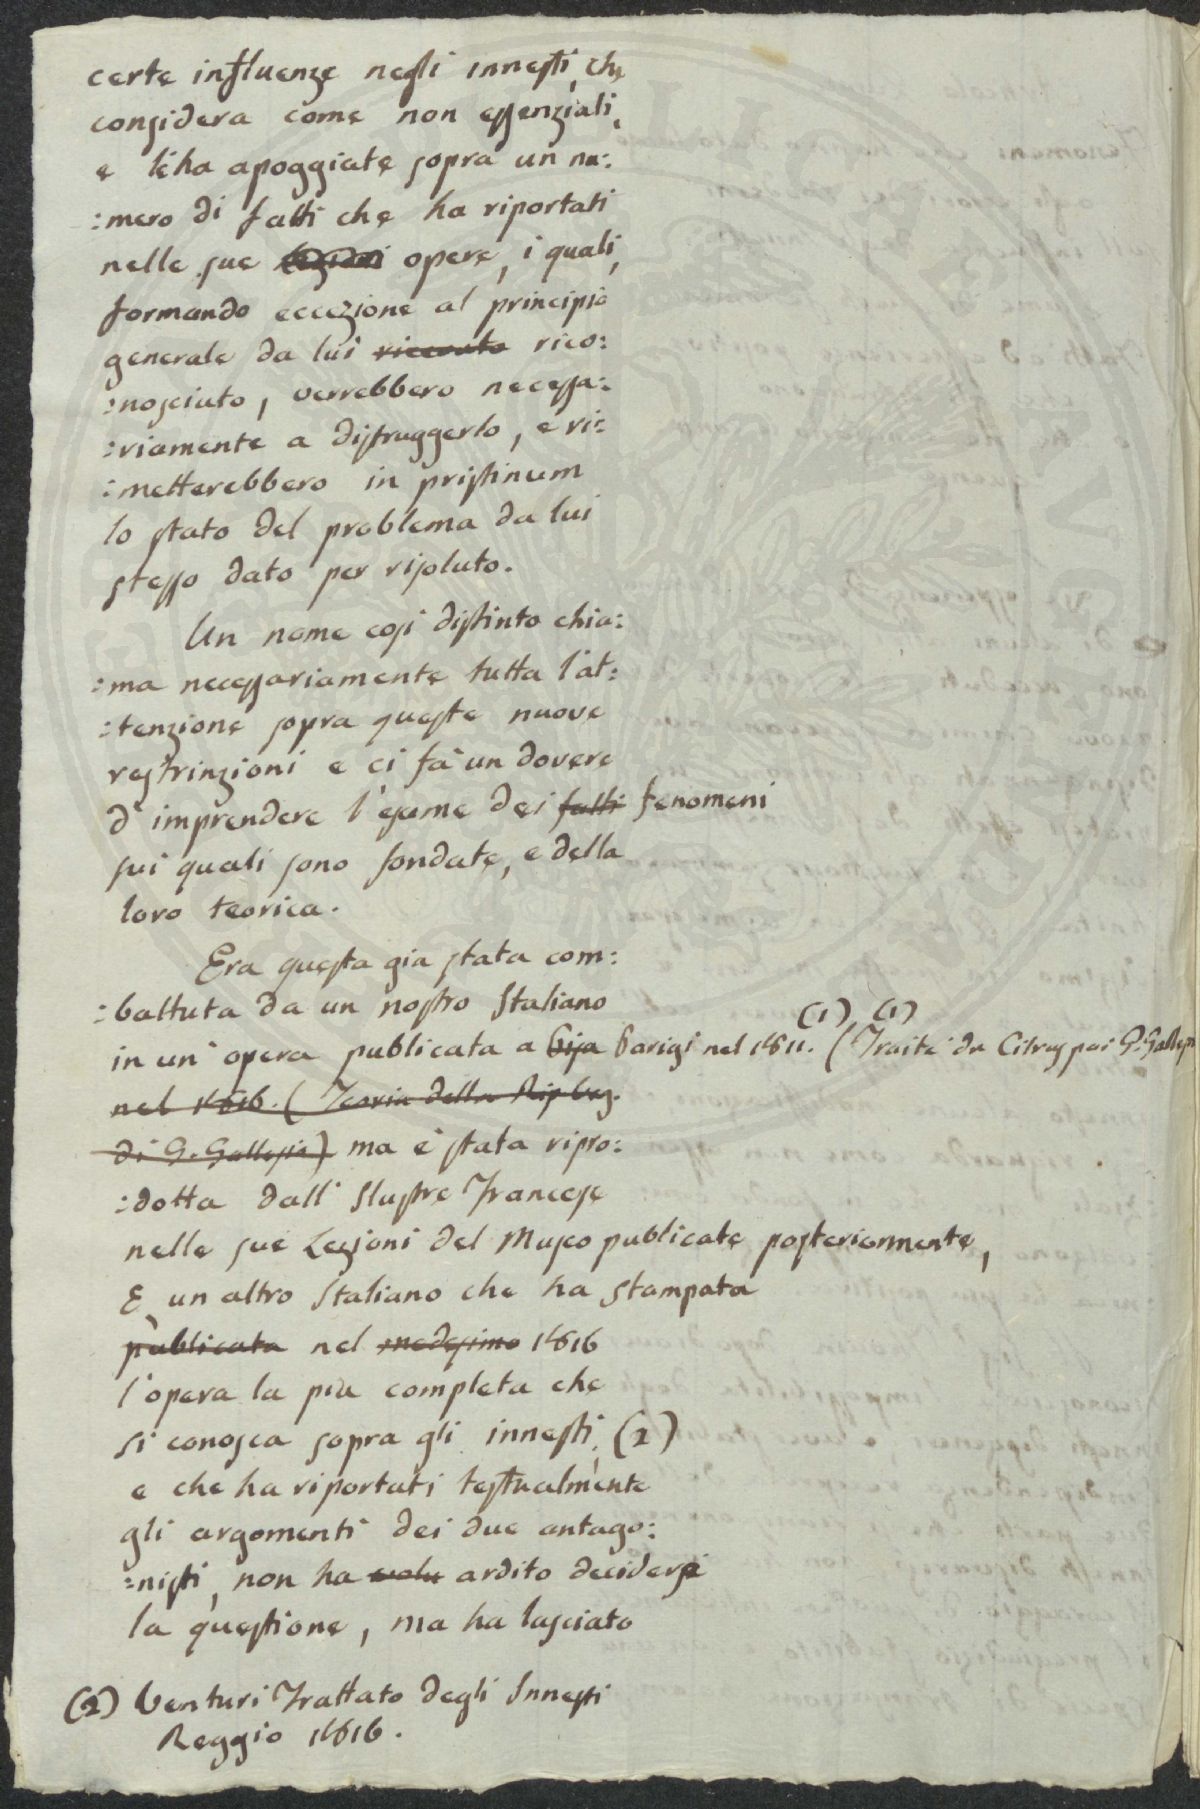 certe influenze negli innesti, che
considera come non essenziali,
e le ha apoggiate sopra un nu:
:mero di fatti che ha riportati
nelle sue lezioni opere, i quali,
formando eccezione al principio
generale da lui ricevuto rico:
:nosciuto, verrebbero necessa:
:riamente a distruggerlo, e ri:
:metterebbero in pristinum
lo stato del problema da lui
stesso dato per risoluto.
Un nome cosi distinto chia:
:ma necessariamente tutta l'at:
:tenzione sopra queste nuove
restrinzioni e ci fà un dovere
d'imprendere l'esame dei fatti fenomeni
sui quali sono fondate, e della
loro teorica.
Era questa gia stata com:
:battuta da un nostro Italiano
in un' opera publicata a Pisa Parigi nel 1811. (1) (1) (Traité du Citrus par G. Gallesio
nel 1816. (Teoria della Rip. Veg.
di G. Gallesio) ma è stata ripro:
:dotta dall' Ilustre Francese
nelle sue Lezioni del Museo publicate posteriormente,
E un altro Italiano che ha stampata
publicata nel medesimo 1816
l'opera la più completa che
si conosca sopra gli innesti, (2)
e che ha riportati testualmente
gli argomenti dei due antago:
:nisti, non ha volu ardito decidere
la questione, ma ha lasciato
(2) Venturi Trattato degli Innesti
Reggio 1816.